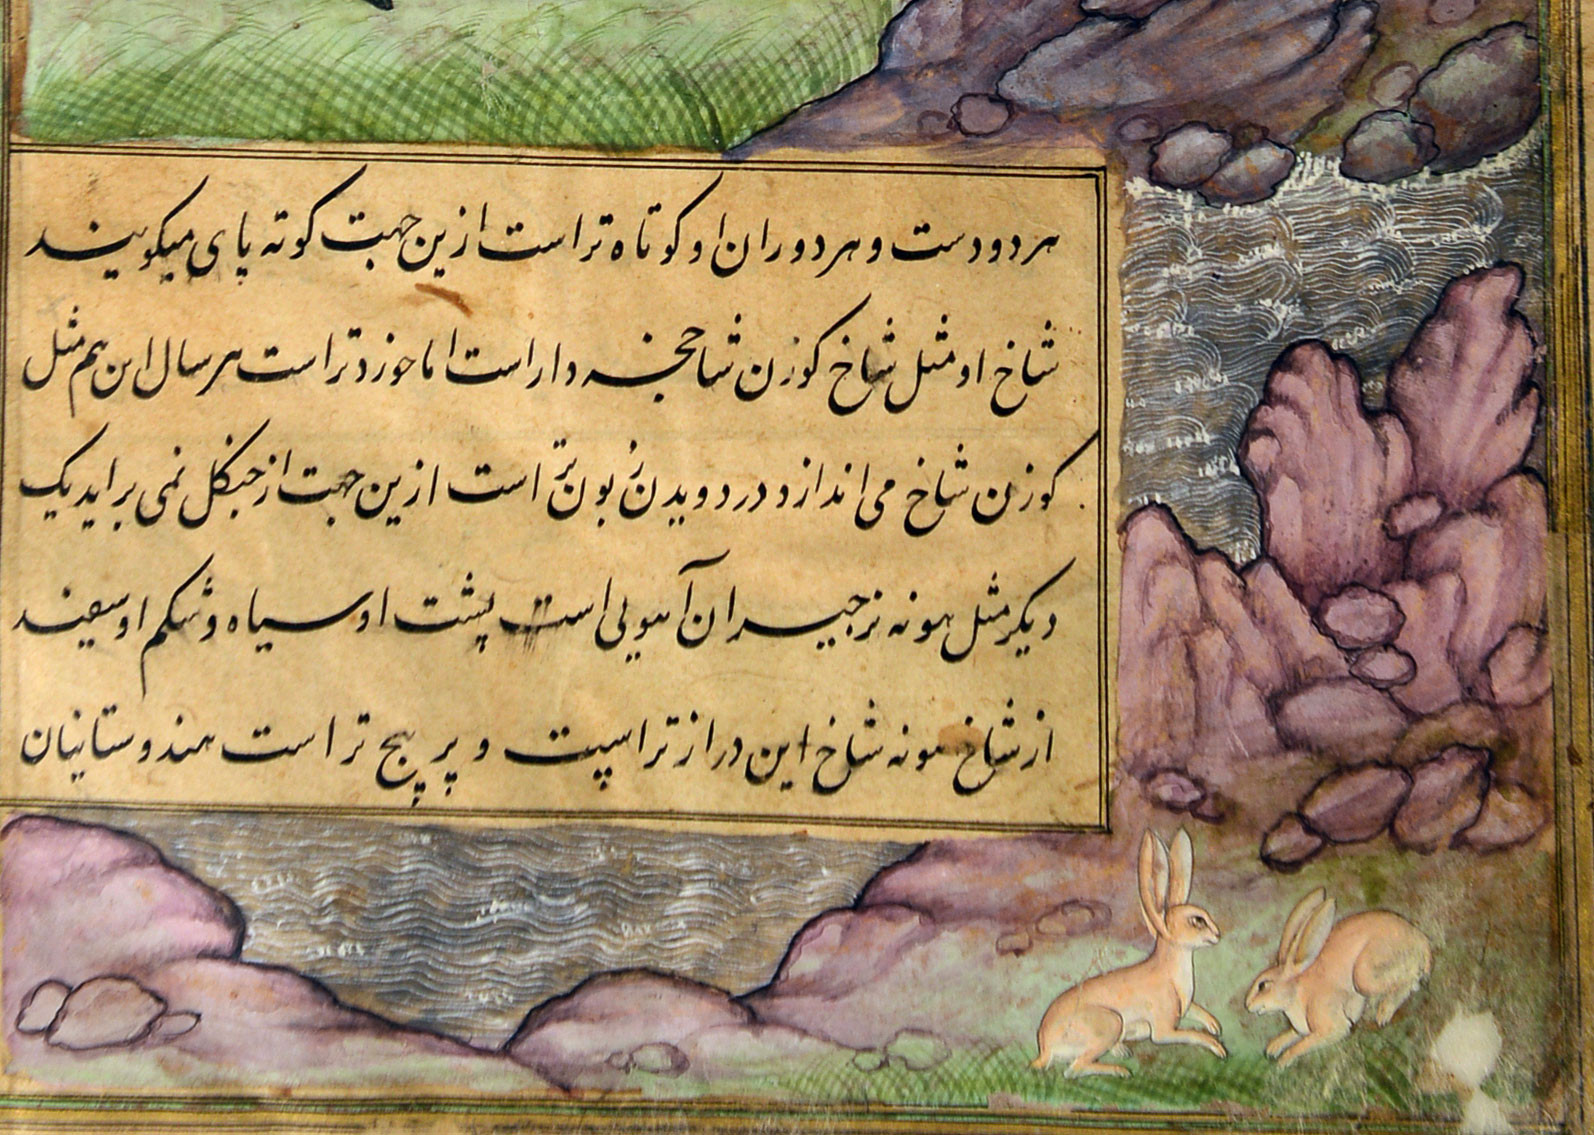 هر دو دست و هر دو ران او کوتاه تر است ازین جهت کوته پای میکویند
شاخ او مثل شاخ کوزن شاخچه دار است اما خورد تر است هر سال این هم مثل
کوزن شاخ می اندازد و در دویدن زبون تر است ازین جهت از جنکل نمی براید یک
دیکر مثل هونه نر جیران آهویی است پشت او سیاه و شکم او سفید
از شاخ هونه شاخ این دراز تر است و پر پیچ تر است هندوستانیان